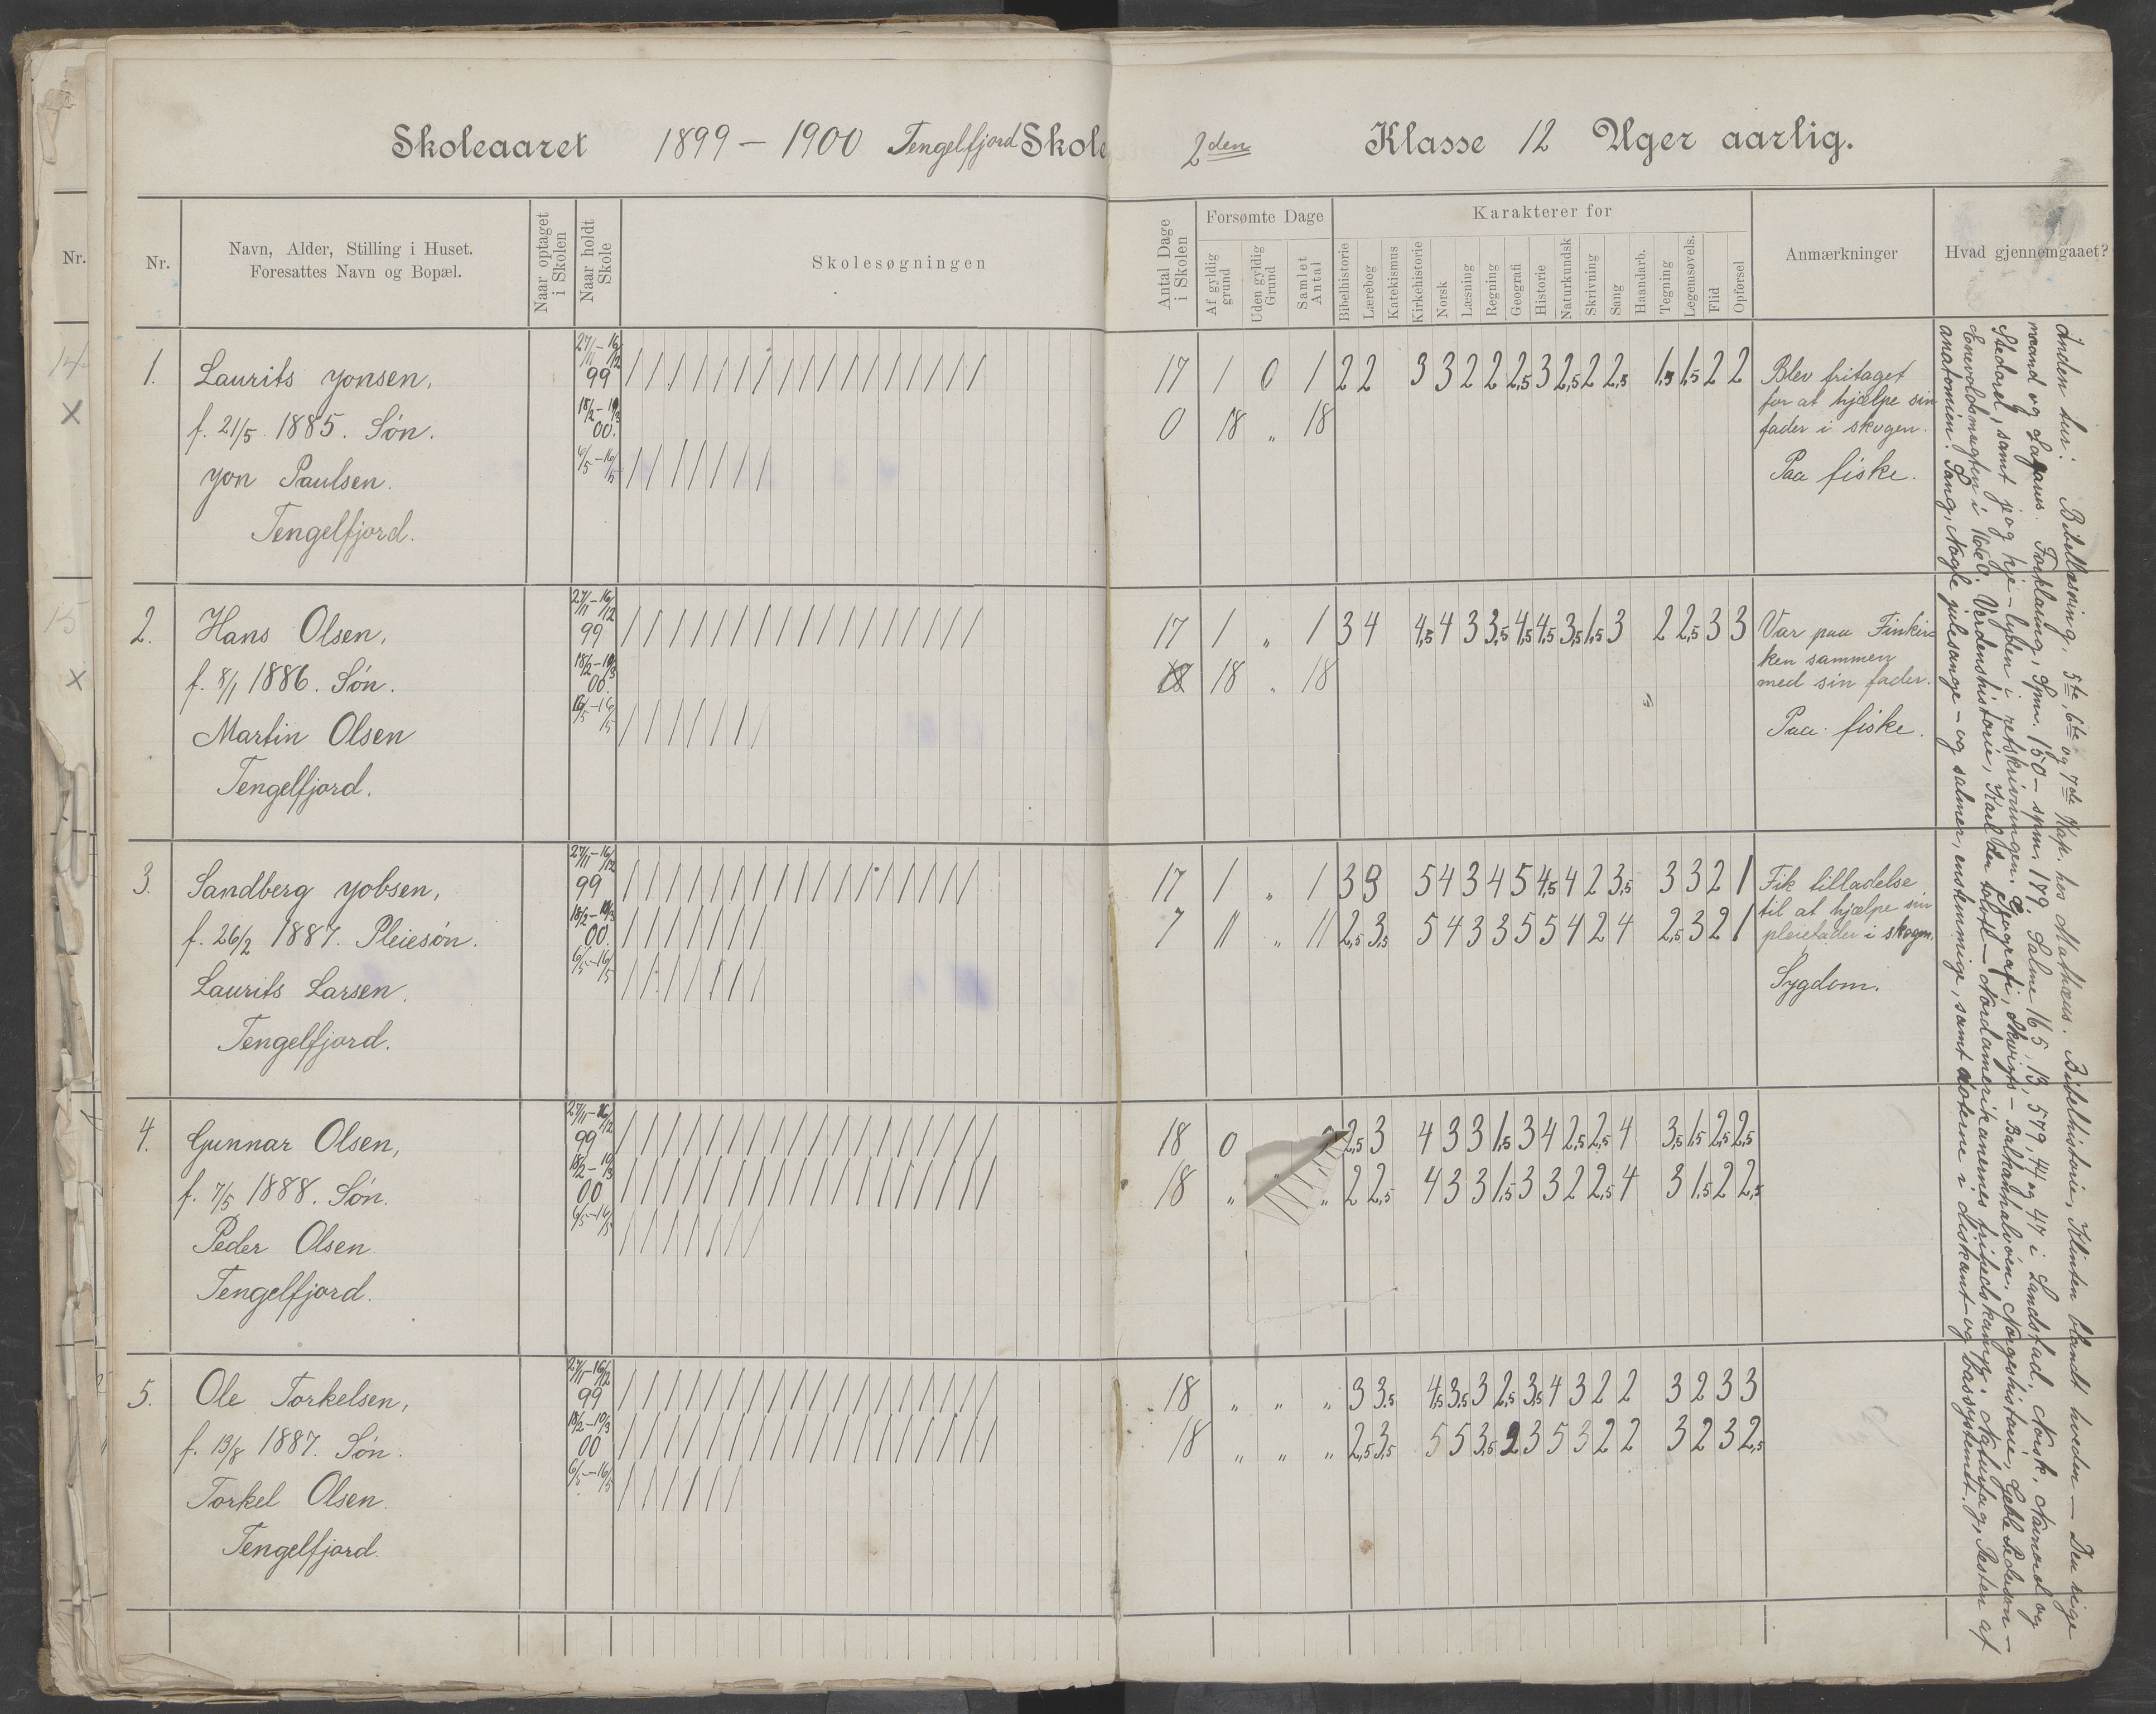 Skoleaaret 1899 – 1900 Tengelfjord Skole
2den Klasse 12 Uger aarlig.
Nr.
Nr.
Navn, Alder, Stilling i Huset.
Foresattes Navn og Bopæl.
Naar optaget
i Skolen
Naar holdt
Skole
Skolesøgningen
Antal Dage
i Skolen
Forsømte Dage
Af gyldig
grund
Uden gyldig
Grund
Samlet
Antal
Karakterer for
Bibelhistorie
Lærebog
Katekismus
Kirkehistorie
Norsk
Læsning
Regning
Geografi
Historie
Naturkundsk
Skrivning
Sang
Haandarb.
Tegning
Legemsøvels.
Flid
Opførsel
Anmærkninger
Hvad gjennemgaaet?
14
X
15
X
1. Laurits Jonsen,
f. 21/5 1885. Søn.
Jon Paulsen.
Tengelfjord.
27/11 – 16/12
99
18/2 – 10/3
00.
6/5 – 16/5
17 1 0 1 2 2 3 3 2 2 2 2,5 3 2,5 2 2,5 1,5 1,5 2 2
0 18 „ 18
Blev fritaget
for at hjælpe sin
fader i skogen.
Paa fiske.
2. Hans Olsen,
f. 8/1 1886. Søn.
Martin Olsen
Tengelfjord.
27/11 – 16/12
99
18/2 – 10/3
00.
6/5 – 16/5
17 1 „ 1 3 4 4,5 4 3 3,5 4,5 4,5 3,5 1,5 3 2 2,5 3 3
18 „ 18
Var paa Finkir
ken sammen
med sin fader.
Paa fiske.
3. Sandberg Jobsen,
f. 26/2 1887. Pleiesøn.
Laurits Larsen.
Tengelfjord.
27/11 – 16/12
99
18/2 – 10/3
00.
6/5 – 16/5
17 1 „ 1 3 3 5 4 3 4 5 4,5 4 2 3,5 3 3 2 1
7 11 „ 11 2,5 3,5 5 4 3 3 5 5 4 2 4 2,5 3 2 1
Fik tilladelse
til at hjælpe sin
pleiefader i skogen.
Sygdom.
4. Gunnar Olsen,
f. 7/5 1888. Søn.
Peder Olsen
Tengelfjord.
27/11 – 16/12
99
18/2 – 10/3
00
6/5 – 16/5
18 0 2,5 3 4 3 3 1,5 3 4 2,5 2,5 4 3,5 1,5 2,5 2,5
18 „ „ 2 2,5 4 3 3 1,5 3 3 2 2,5 4 3 1,5 2 2,5
5. Ole Torkelsen,
f. 13/8 1887. Søn.
Torkel Olsen
Tengelfjord.
27/11 – 16/12
99
18/2 – 10/3
00
6/5 – 16/5
18 „ „ „ 3 3,5 4,5 3,5 3 2,5 3,5 4 3 2 2 3 2 3 3
18 „ „ „ 2,5 3,5 5 5 3,5 2 3 5 3 2 2 3 2 3 2,5
Anden tur: Bibellæsning, 5te, 6te og 7de Kap. hos Mathæus. Bibelhistorie, Klinten blandt hveden – Den rige
mand og Lazarus. Forklaring, Spm. 150 – spm. 179. Salme 165, 13, 579, 44 og 47 i Landstad. Norsk. Navneord og
Stedord, samt j og hj – lyden i retskrivningen. Geografi, Sverige – Balkanhalvøen. Norgeshistorie, Gjeble Pederssøn –
Enevoldsmagten i 1660. Verdenshistorie, Karl den store – Nordamerikanernes frihedskamp. Naturfag, Resten af
anatomien. Sang, Nogle julesange – og salmer, enstemmige, samt noterne i diskant – og bassystemet.